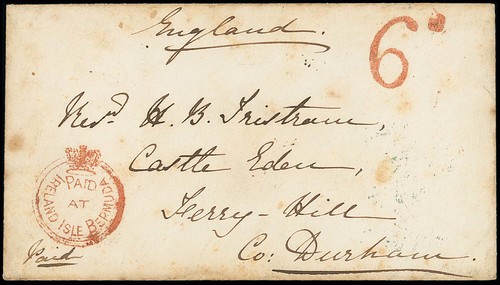 England.
6D
Revd H. B. Tristram,
Castle Eden,
Ferry-Hill
Co: Durham.
PAID
AT
IRELAND ISLE BERMUDA
Paid